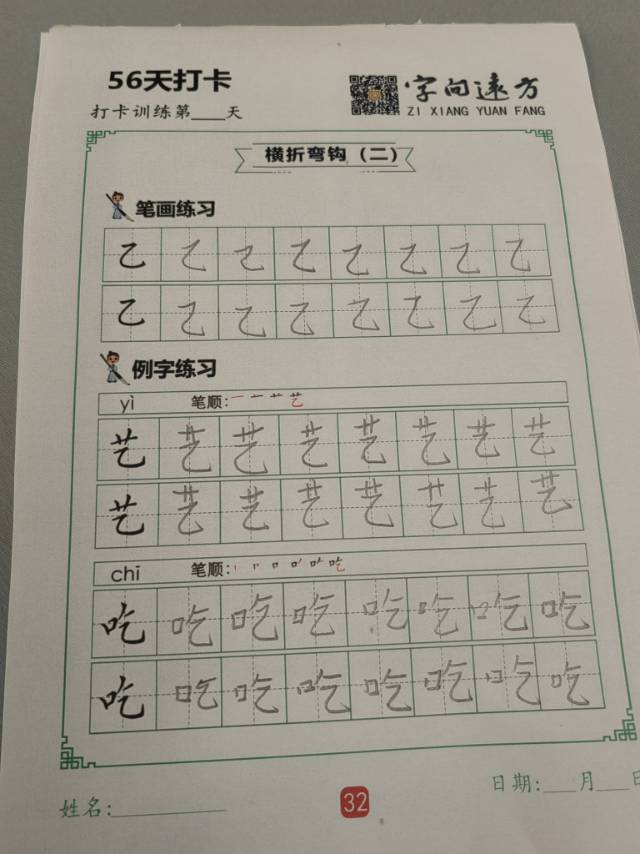 56天打卡
字向远方
打卡训练第___天
ZI XIANG YUAN FANG
横折弯钩（二）
笔画练习
乙 乙 乙 乙 乙 乙 乙 乙
乙 乙 乙 乙 乙 乙 乙 乙
例字练习
yì 笔顺:
艺 艺 艺 艺 艺 艺 艺 艺
艺 艺 艺 艺 艺 艺 艺 艺
chī 笔顺:
吃 吃 吃 吃 吃 吃 吃 吃
吃 吃 吃 吃 吃 吃 吃 吃
姓名:
32
日期:___月___日